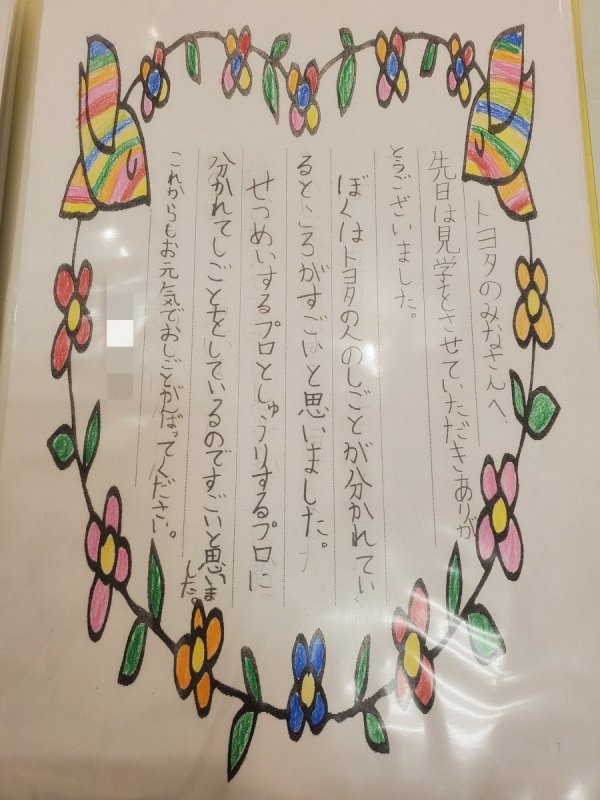 トヨタのみなさんへ、
先日は見学をさせていただきありが
とうございました。
ぼくはトヨタの人のしごとが分かれてい
るところがすごいと思いました。
せつめいするプロとしゅうりするプロに
分かれてしごとをしているのですごいと思いました。
これからもお元気でおしごとがんばってください。